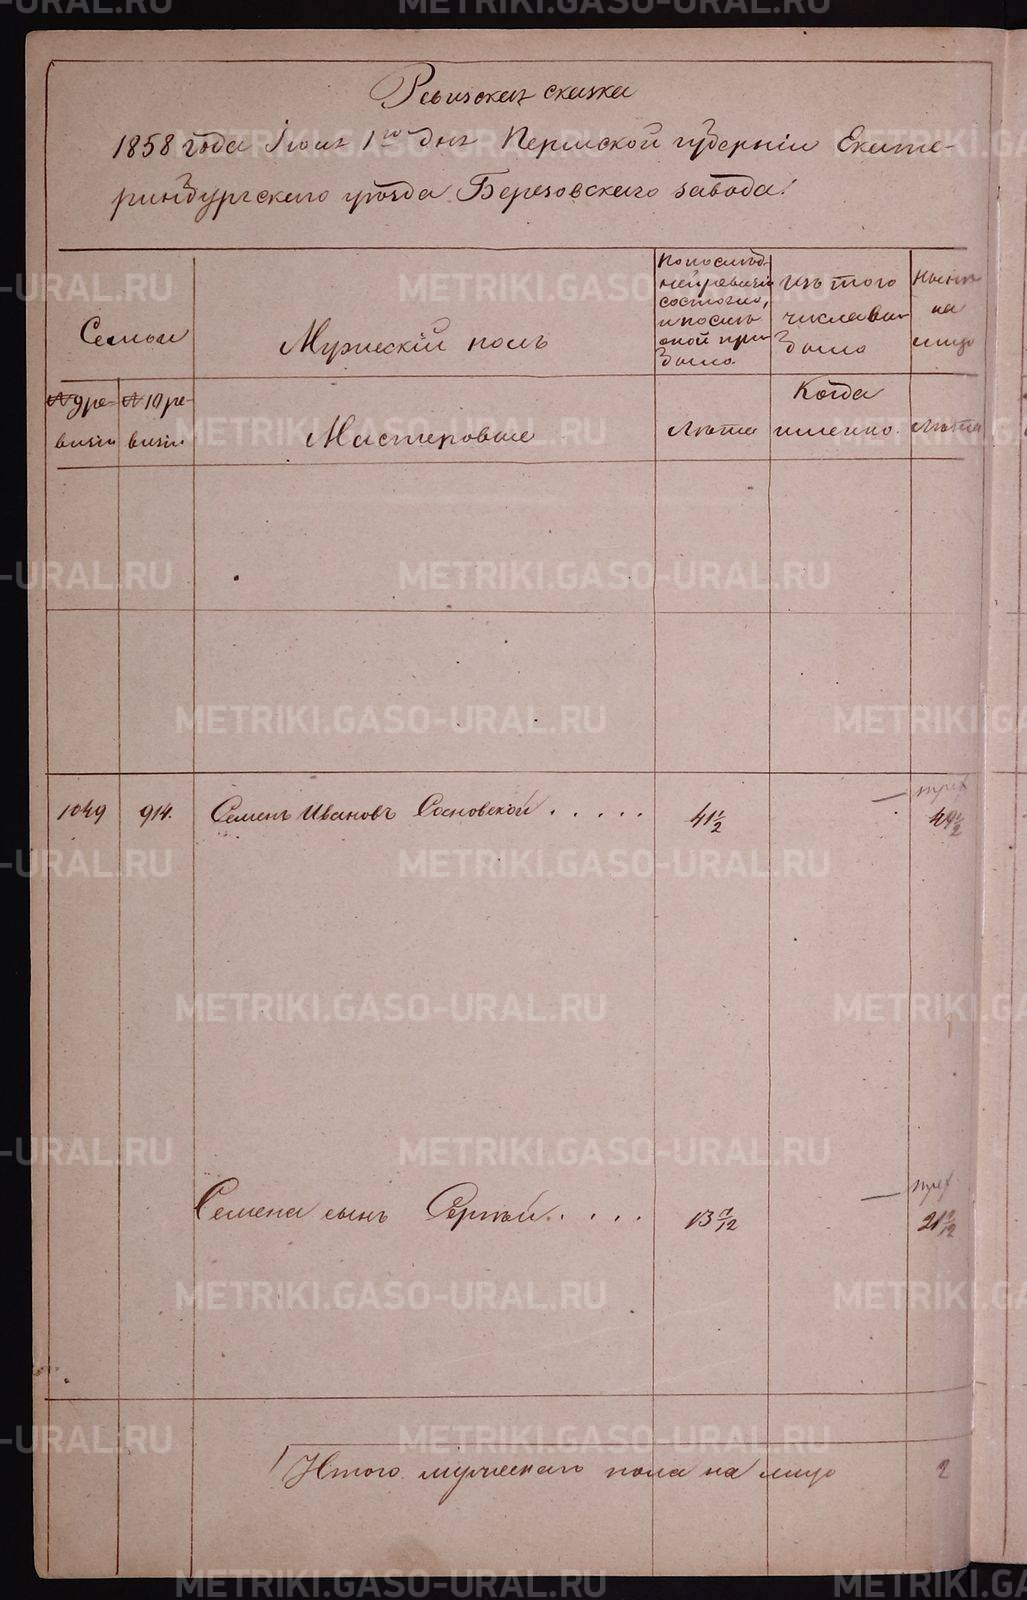 Ревизская сказка
1858 года Іюня 1го дня Пермской губерніи Екате-
ринбургскаго уѣзда Березовскаго завода.
Семьи
Мужескій полъ
По послѣд-
ней ревизіи
состояло,
и послѣ
оной при-
было.
Изъ того
числа вы-
было
Нынѣ
на
лицо
№ 9 ре-
визіи
№ 10 ре-
визіи
Мастеровые
Лѣта
Когда
именно.
Лѣта
1049 914. Семенъ Ивановъ Сосновской . . . . . 41 1/2 — 49 1/2
Семена сынъ Сергѣй. . . . . —
Итого мужескаго пола на лицо 2
METRIKI.GASO-URAL.RU